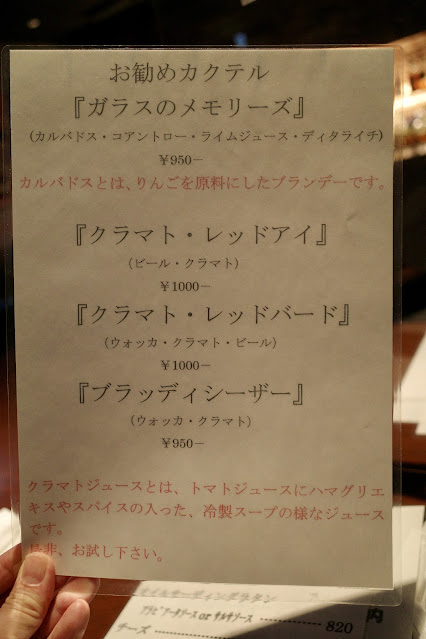 お勧めカクテル
『ガラスのメモリーズ』
(カルバドス・コアントロー・ライムジュース・ディタライチ)
￥950－
カルバドスとは、りんごを原料にしたブランデーです。
『クラマト・レッドアイ』
(ビール・クラマト)
￥1000－
『クラマト・レッドバード』
(ウォッカ・クラマト・ビール)
￥1000－
『ブラッディシーザー』
(ウォッカ・クラマト)
￥950－
クラマトジュースとは、トマトジュースにハマグリエ
キスやスパイスの入った、冷製スープの様なジュース
です。
是非、お試し下さい。
オイルサーディングラタン
アラビアータソース or サルサソース
820
チーズ
内